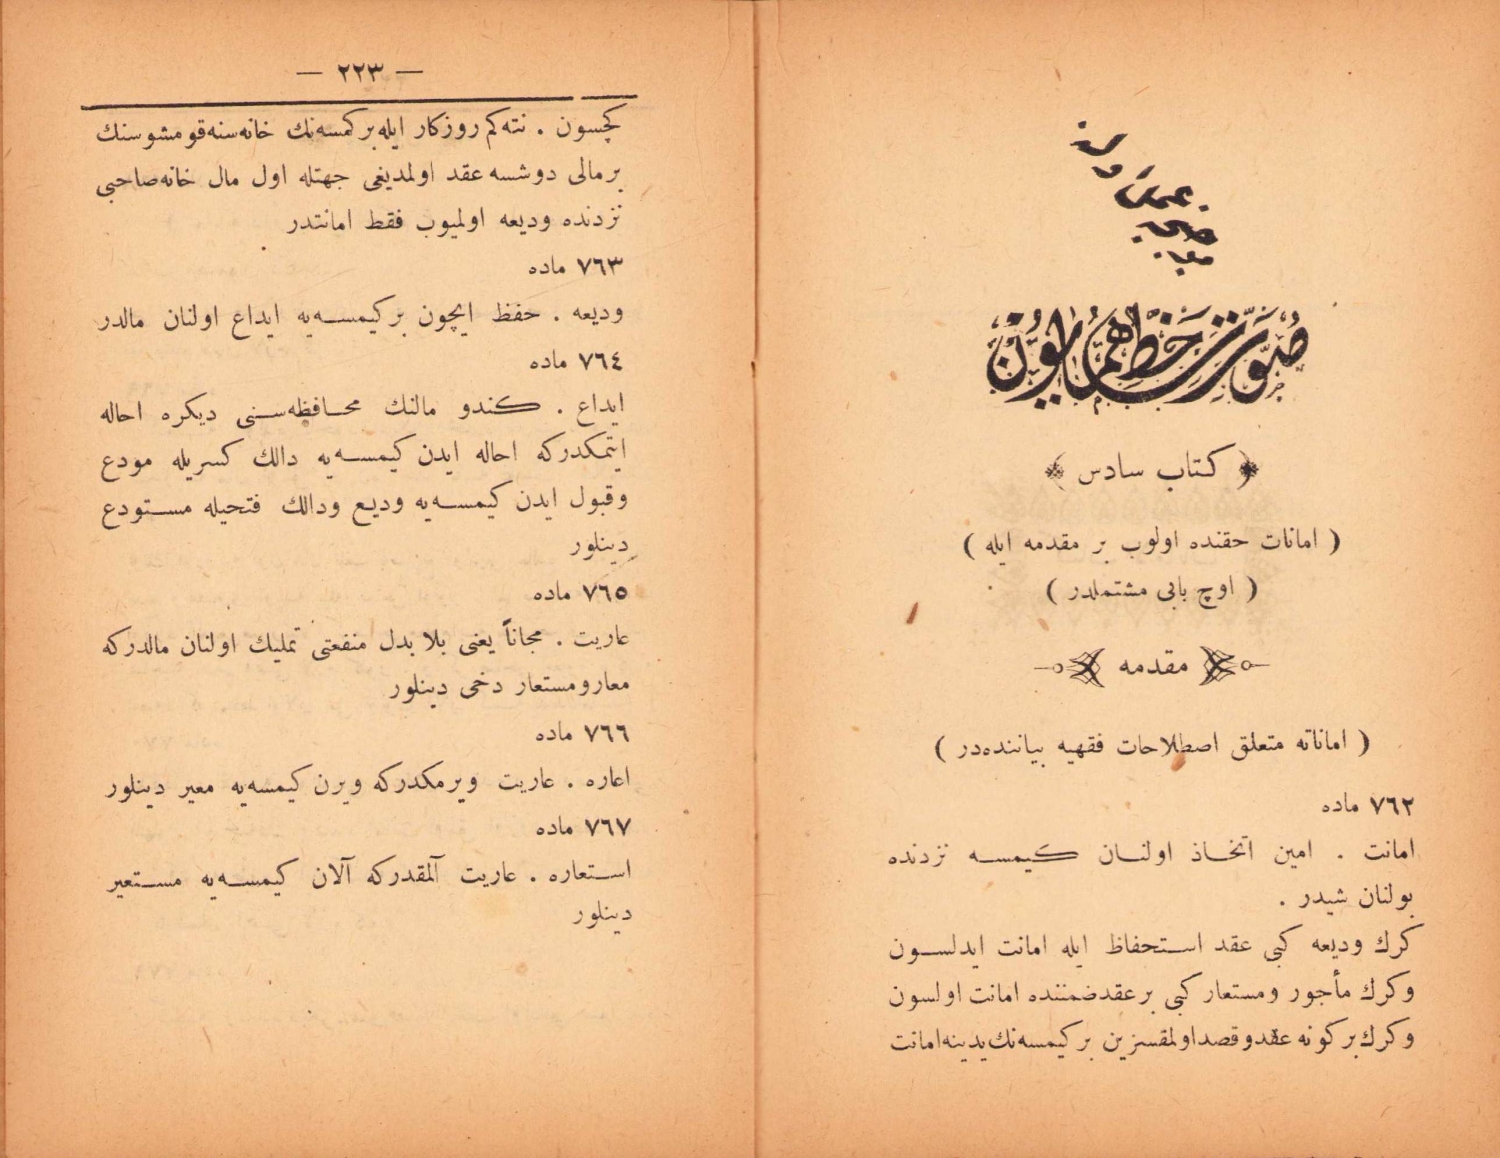 موجبنجه عمل اولنه
صورت خط همايون
﴿ كتاب سادس ﴾
( امانات حقنده اولوب بر مقدمه ايله )
( اوچ بابى مشتملدر )
مقدمه
( اماناته متعلق اصطلاحات فقهيه بياننده‌در )
٧٦٢ ماده
امانت . امين اتخاذ اولنان كيمسه نزدنده
بولنان شيدر .
كرك وديعه كبى عقد استحفاظ ايله امانت ايدلسون
وكرك مأجور ومستعار كبى بر عقد ضمننده امانت اولسون
وكرك بركونه عقد وقصد اولمقسزين بر كيمسه‌نك يدينه امانت
— ٢٢٣ —
كچسون . نته‌كم روزكار ايله بر كمسه‌نك خانه‌سنه قومشوسنك
بر مالى دوشسه عقد اولمديغى جهتله اول مال خانه صاحبى
نزدنده وديعه اولميوب فقط امانتدر
٧٦٣ ماده
وديعه . حفظ ايچون بر كيمسه‌يه ايداع اولنان مالدر
٧٦٤ ماده
ايداع . كندو مالنك محافظه‌سنى ديكره احاله
ايتمكدركه احاله ايدن كيمسه‌يه دالك كسريله مودع
وقبول ايدن كيمسه‌يه وديع ودالك فتحيله مستودع
دينلور
٧٦٥ ماده
عاريت . مجاناً يعنى بلا بدل منفعتى تمليك اولنان مالدركه
معار ومستعار دخى دينلور
٧٦٦ ماده
اعاره . عاريت ويرمكدركه ويرن كيمسه‌يه معير دينلور
٧٦٧ ماده
استعاره . عاريت آلمقدركه آلان كيمسه‌يه مستعير
دينلور